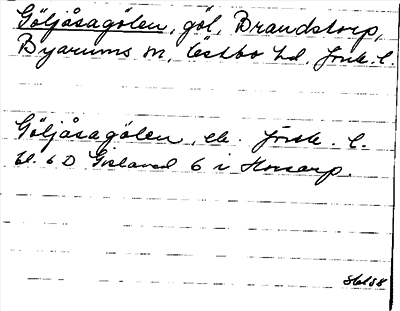 Göljåsagölen, göl, Brandstorp,
Byarums sn, Östbo hd, Jönk. l.
Göljåsagölen, ek. Jönk. l.
bl. 6 D Gislaved 6 i Horsarp.